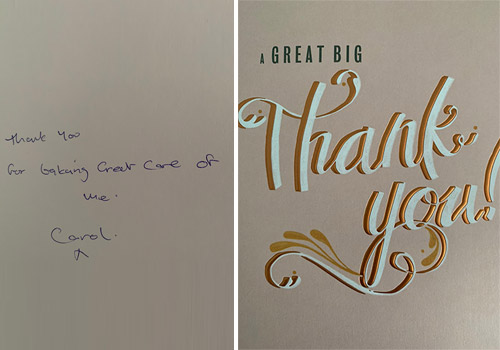 Thank You
For taking Great Care of
me.
Carol.
X
A GREAT BIG
Thank
you!